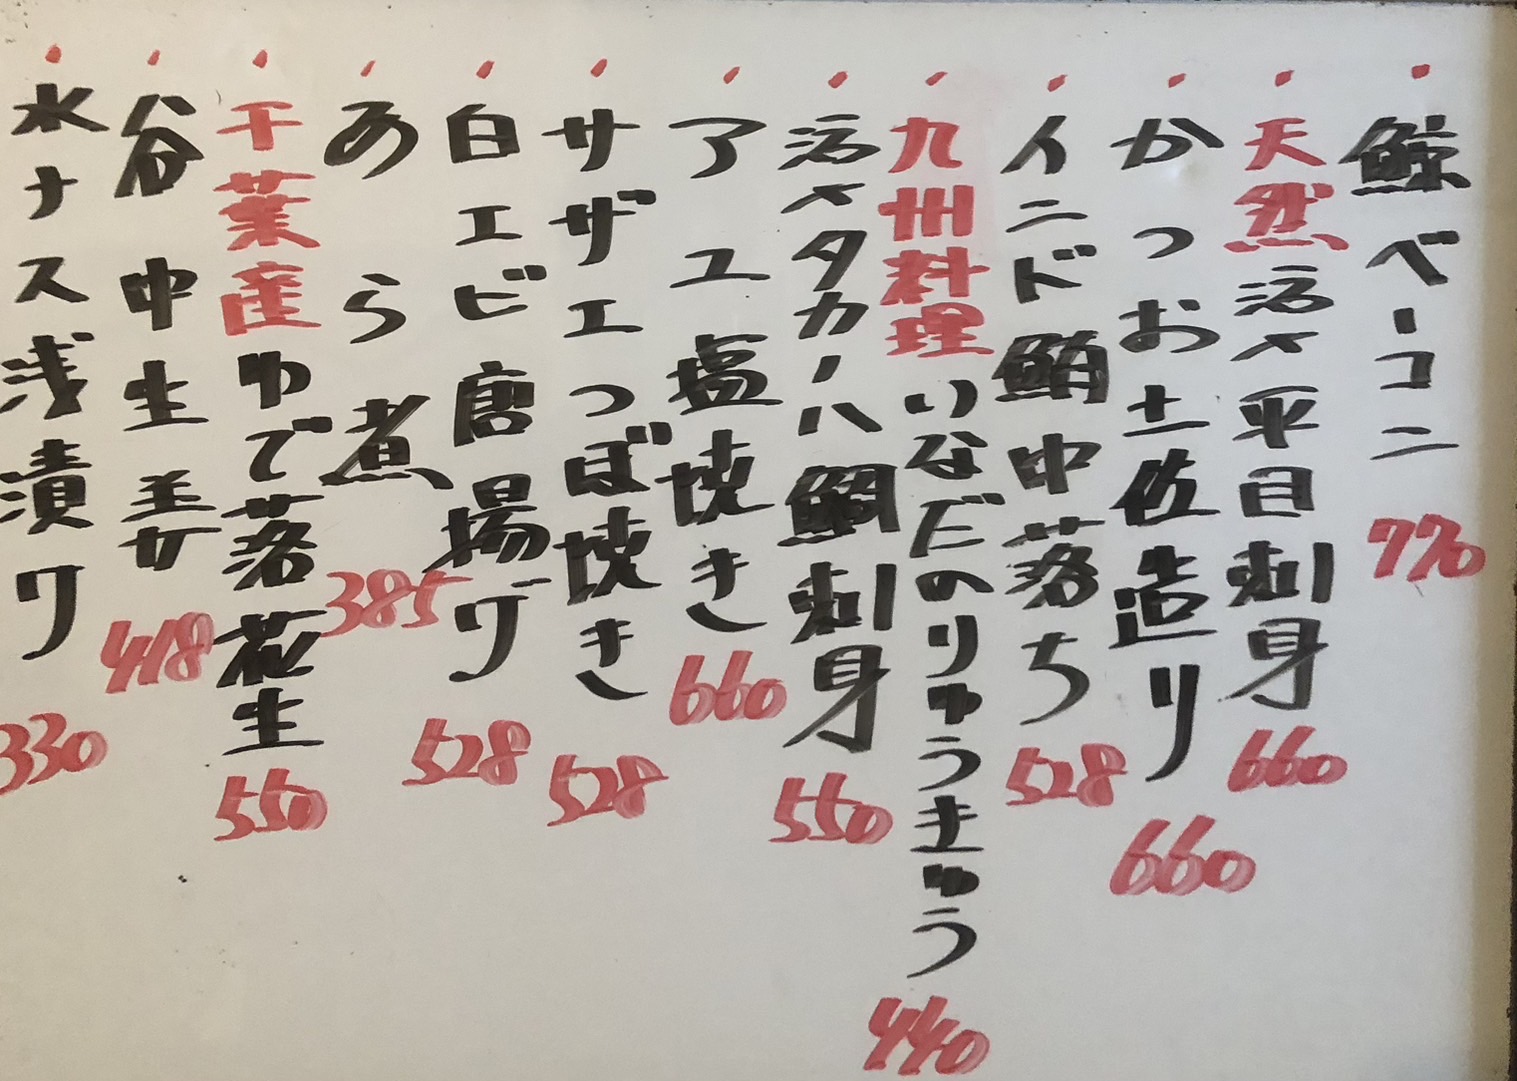 鯨ベーコン 770
天然活〆平目刺身 660
かつお土佐造り 660
インド鮪中落ち 528
九州料理いなだのりゅうきゅう 440
活〆タカノハ鯛刺身 550
アユ塩焼き 660
サザエつぼ焼き 528
白エビ唐揚げ 528
あら煮 385
千葉産ゆで落花生 550
谷中生姜 418
水ナス浅漬り 330